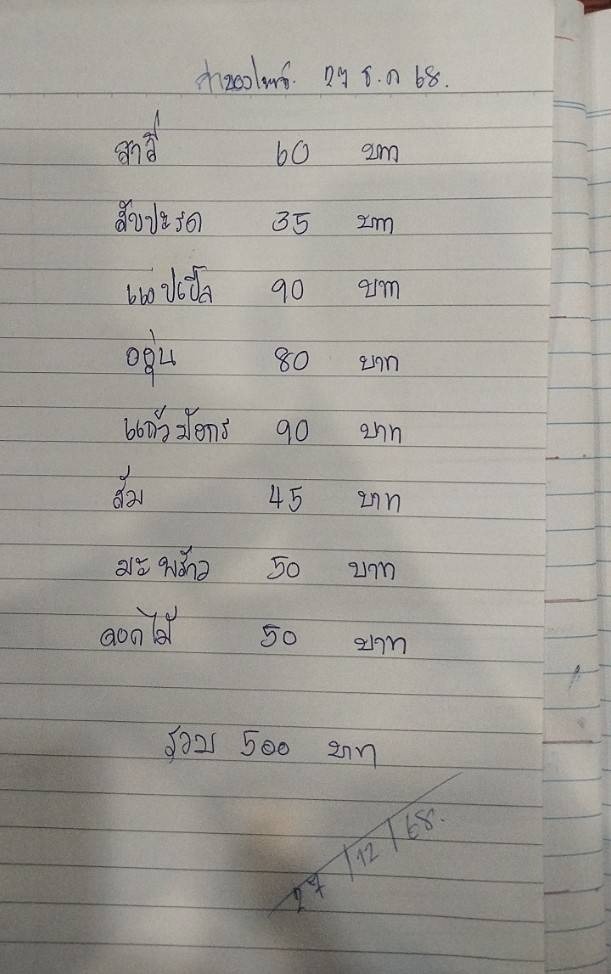 ค่าของไหว้. 27 ธ.ค 68.
สาลี่ 60 บาท
สับปะรด 35 บาท
แอปเปิ้ล 90 บาท
องุ่น 80 บาท
แก้วมังกร 90 บาท
ส้ม 45 บาท
มะพร้าว 50 บาท
ดอกไม้ 50 บาท
รวม 500 บาท
27/12/68.